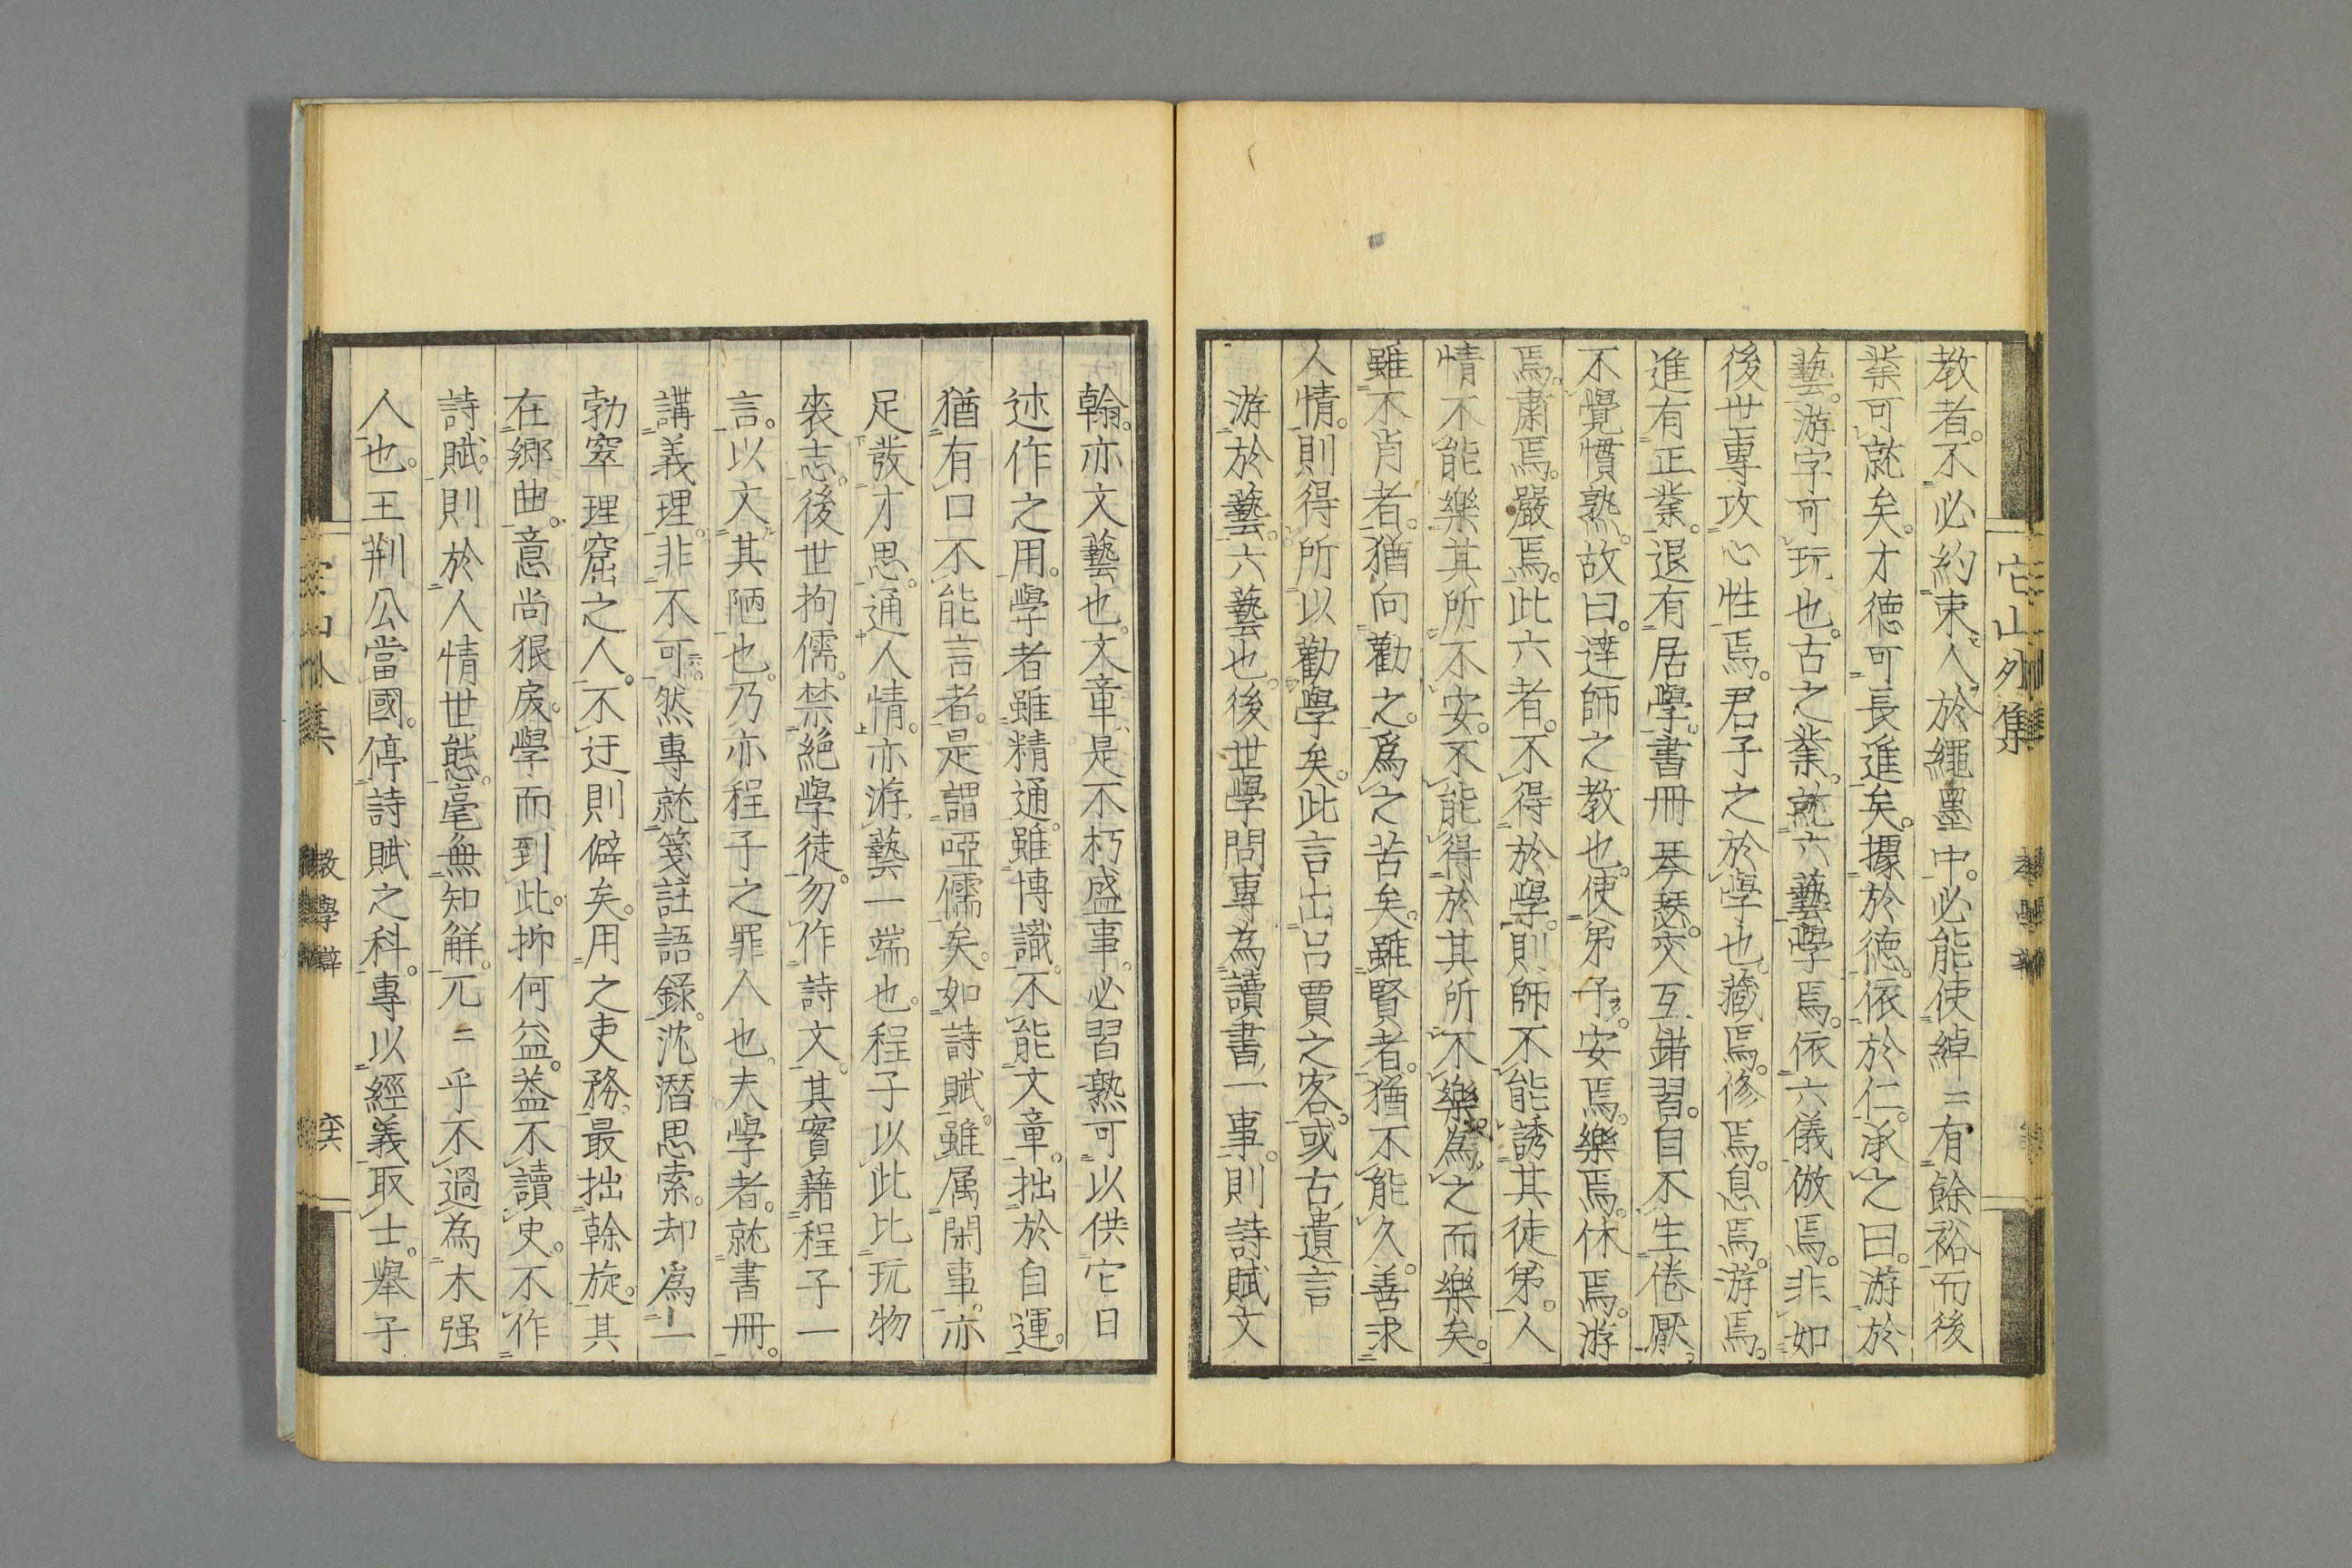 它山外集
教者。不必約束人於繩墨中。必能使綽〻有餘裕而後
業可就矣。才德可長進矣。據於德。依於仁。承之曰。游於
藝。游字可玩也。古之業。就六藝學焉。依六儀倣焉。非如
後世專攻心性焉。君子之於學也。藏焉。修焉。息焉。游焉。
進有正業。退有居學。書冊琴瑟。交互錯習。自不生倦厭。
不覺慣熟。故曰。達師之教也。使弟子。安焉。樂焉。休焉。游
焉。肅焉。嚴焉。此六者。不得於學。則師不能誘其徒弟。人
情不能樂其所不安。不能得於其所不樂。為之而樂矣。
雖不肖者。猶向勸之。爲之苦矣。雖賢者。猶不能久。善求
人情。則得所以勸學矣。此言出呂賈之客。或古遺言
游於藝。六藝也。後世學問專為讀書一事。則詩賦文
翰。亦文藝也。文章是不朽盛事。必習熟可以供它日
述作之用。學者雖精通。雖博識。不能文章。拙於自運。
猶有口不能言者。是謂啞儒矣。如詩賦。雖属閑事。亦
足發才思。通人情。亦游藝一端也。程子以此比玩物
喪志。後世拘儒。禁絕學徒。勿作詩文。其實藉程子一
言。以文其陋也。乃亦程子之罪人也。夫學者。就書冊。
講義理。非不可。然專就箋註語錄。沈潛思索。却爲一
勃窣理窟之人。不迂則僻矣。用之吏務。最拙幹旋。其
在鄉曲。意尚狠戾。學而到此。抑何益。葢不讀史。不作
詩賦。則於人情世態。毫無知解。兀〻乎不過為木强
人也。王荆公當國。停詩賦之科。專以經義取士。舉子
教學辯